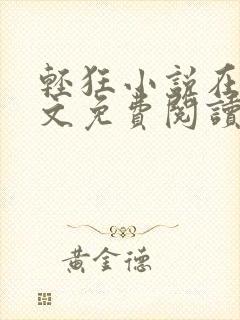 輕狂小說在
文免費閱讀
黃金德